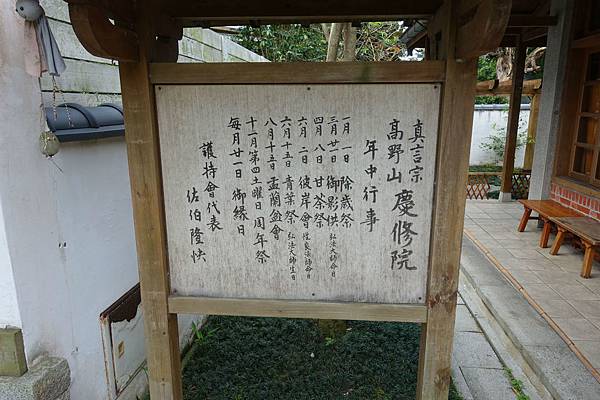 真言宗
高野山 慶修院
年中行事
一月一日 除歳祭
三月廿一日 御影供 弘法大師命日
四月八日 甘茶祭
六月二日 彼岸會
六月十五日 青葉祭 弘法大師生日
八月十五日 盂蘭盆會
十一月第四土曜日 周年祭
每月廿一日 御縁日
護持會代表
佐伯隆快